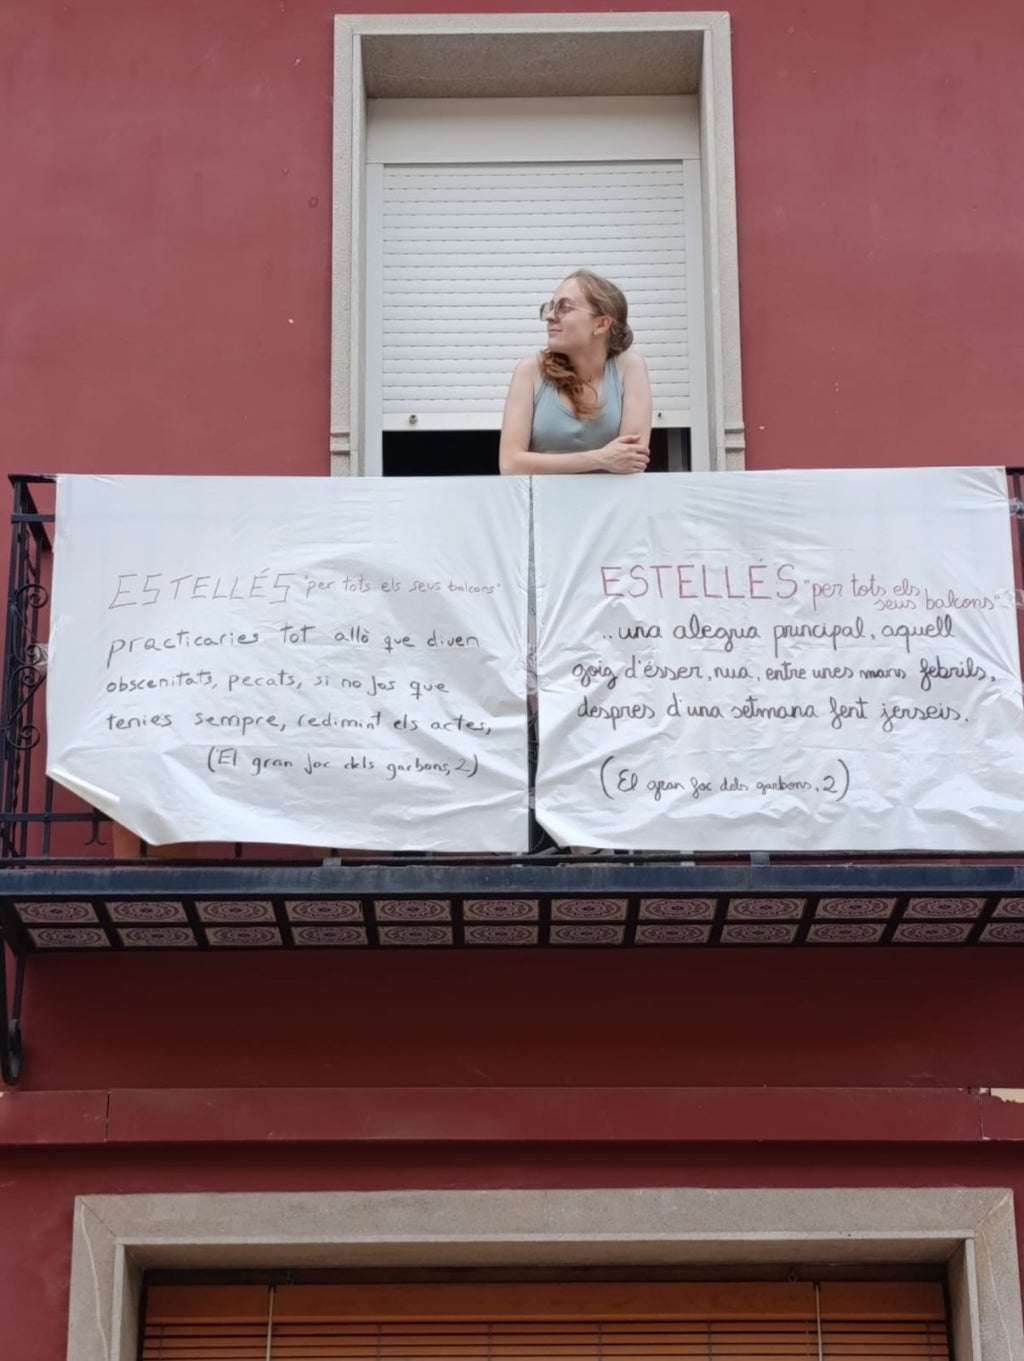 ESTELLÉS "per tots els seus balcons"
practicaries tot allò que diuen
obscenitats, pecats, si no fos que
tenies sempre, redimint els actes,
(El gran foc dels garbons, 2)
ESTELLÉS "per tots els
seus balcons"
...una alegria principal, aquell
goig d'ésser, nua, entre unes mans febrils,
despres d'una setmana fent jerseis.
(El gran foc dels garbons, 2)